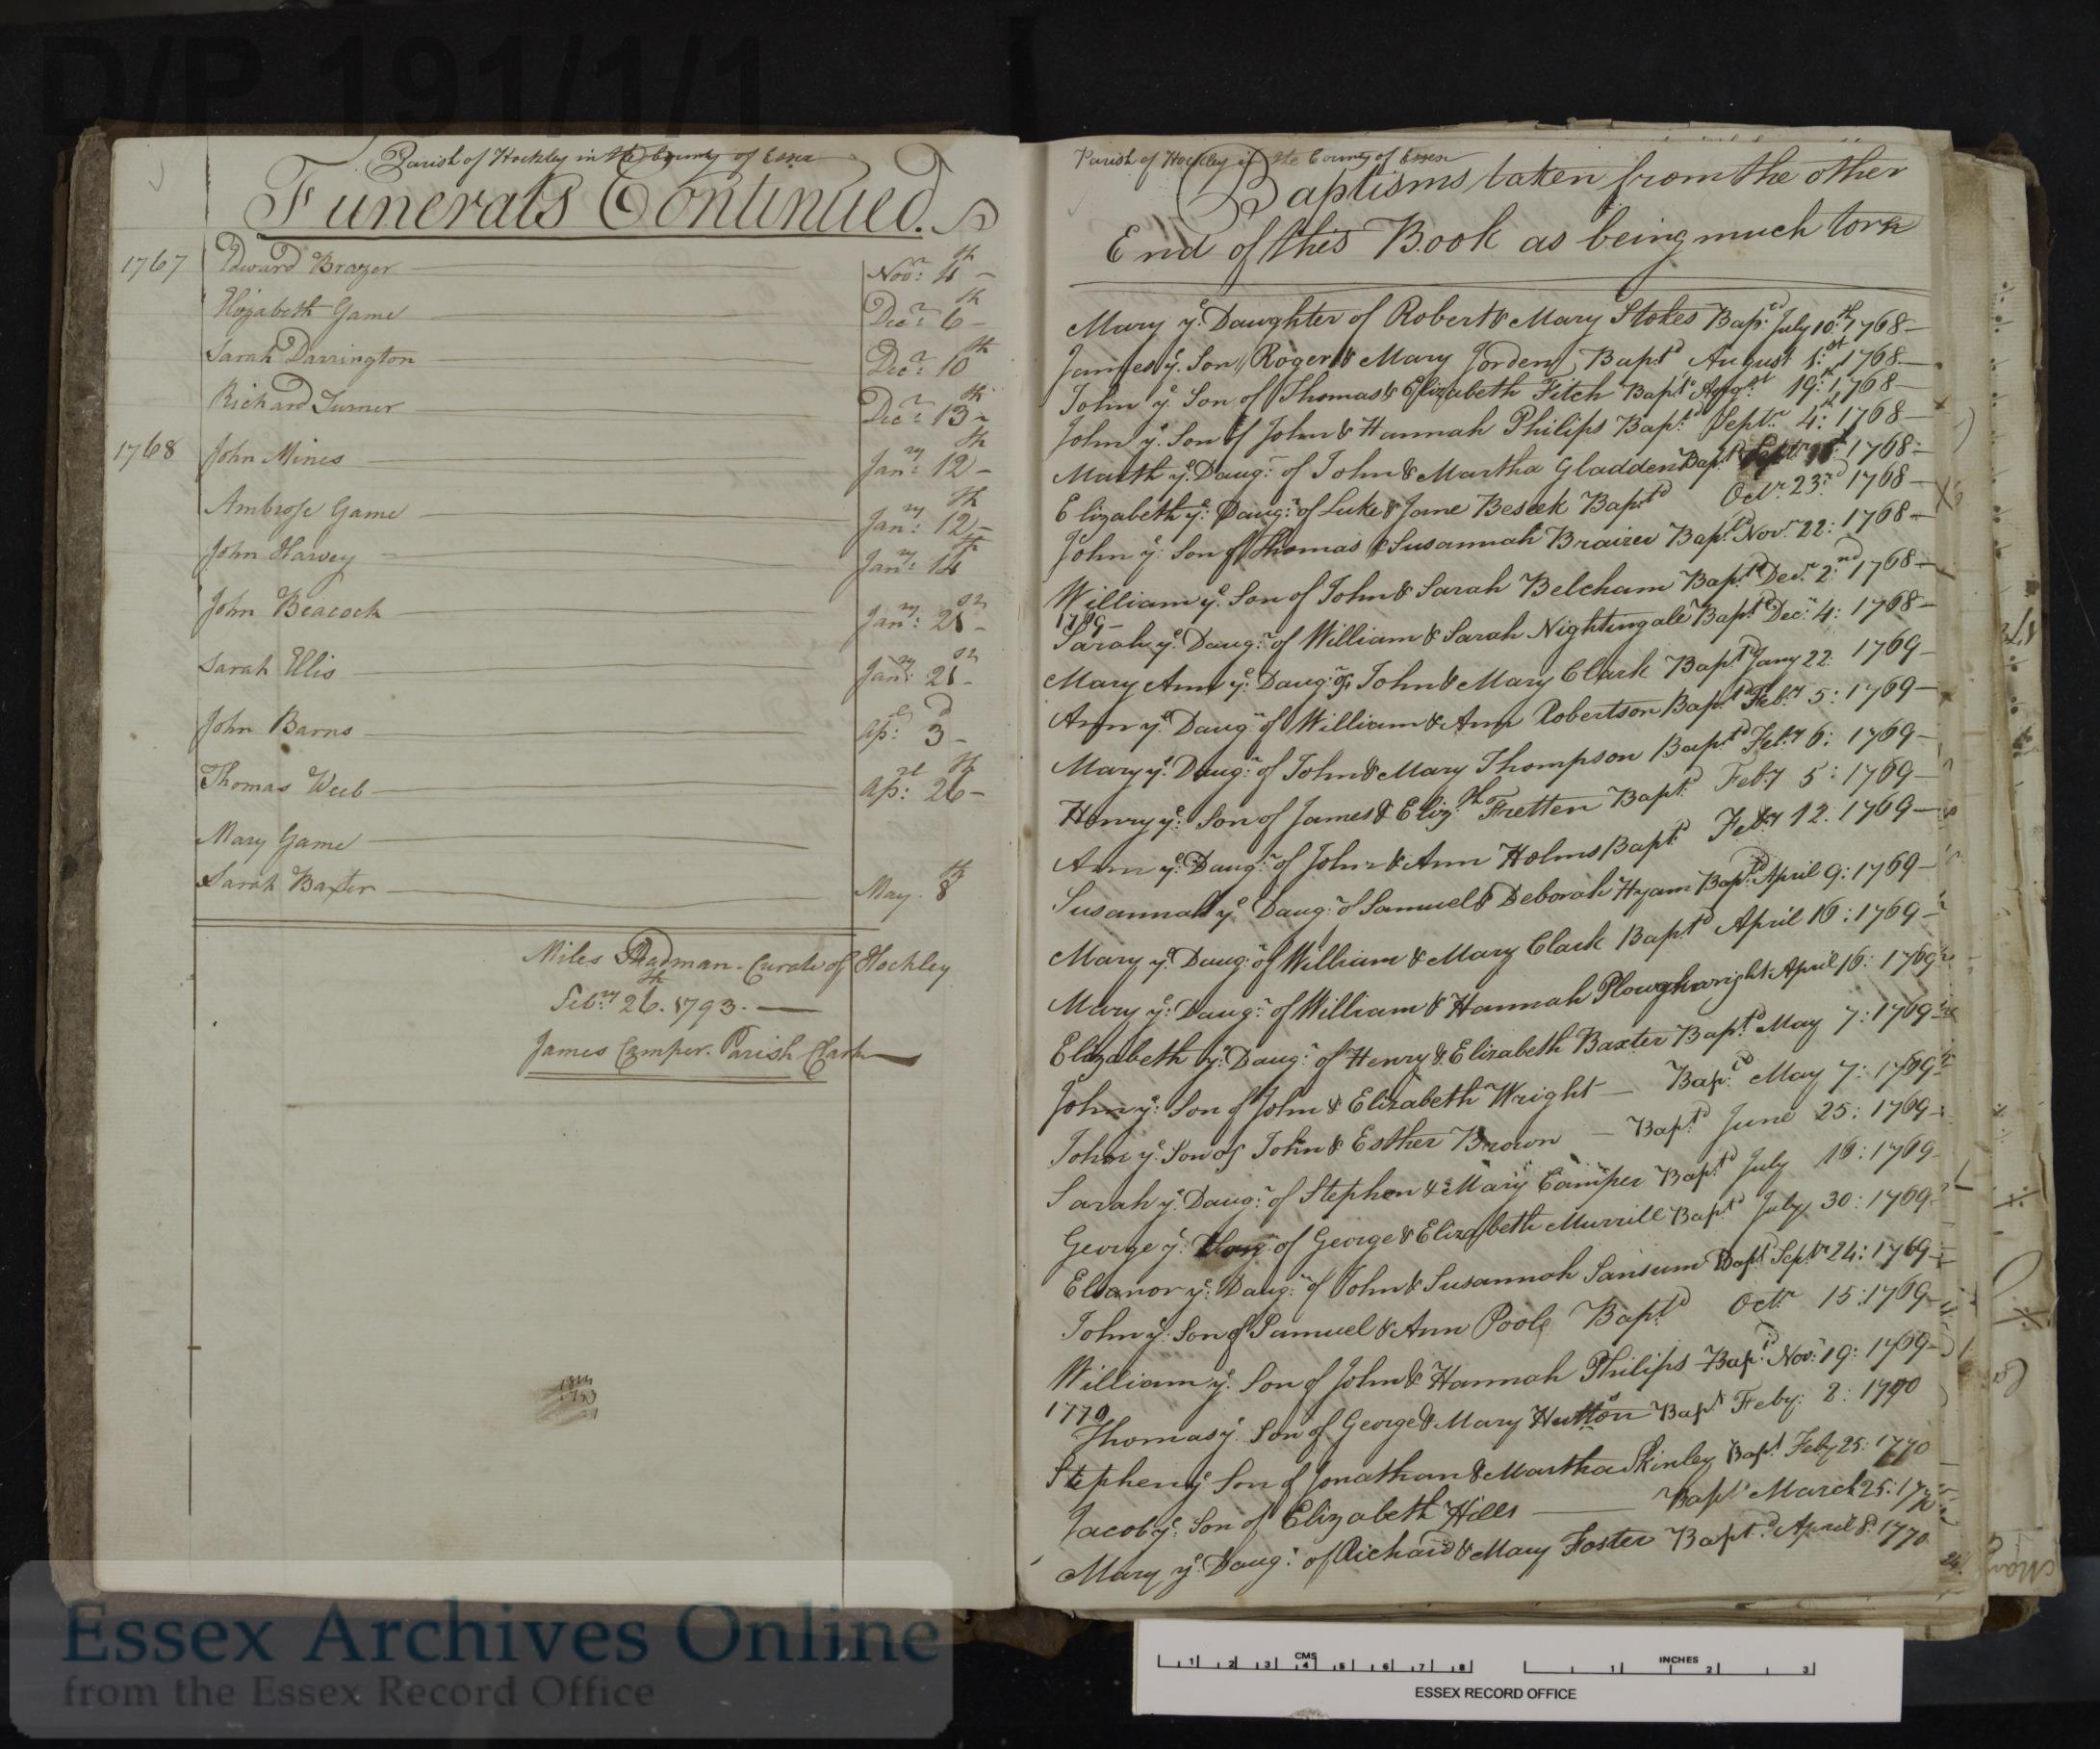 D/P 191/1/1
Parish of Hockley in the County of Essex
Funerals Continued.
1767 Edward Brazer Nov.r 4th
Elizabeth Game Dec.r 6th
Sarah Darrington Dec.r 10th
Richard Turner Dec.r 13th
1768 John Mines Jan.ry 12th
Ambrose Game Jan.ry 12th
John Harvey Jan.ry 14th
John Beacock Jan.ry 21st
Sarah Ellis Jan.ry 21st
John Barns Ap.l 3d
Thomas Weeb Ap.l 26th
Mary Game
Sarah Baxter May 8th
Miles Curate of Hockley
Feb.ry 26th 1793.
James Camper Parish Clark
Parish of Hockley in the County of Essex
Baptisms taken from the other
End of this Book as being much torn
Mary ye Daughter of Robert & Mary Stokes Bap.d July 10th 1768
James ye Son Roger & Mary Jorden Bapt.d August 1st 1768
John ye Son of Thomas & Elizabeth Fitch Bapt.d Augst 19: 1768
John ye Son of John & Hannah Philips Bap.d Septr. 4: 1768
Marth ye Daug.r of John & Martha Gladden Bap.d 1768
Elizabeth ye Daug.r of Luke & Jane Beseek Bapt.d Octr. 23rd 1768
John ye Son of Thomas & Susannah Braizer Bap.d Nov.r 22: 1768
William ye Son of John & Sarah Belcham Bapt.d Dec.r 2nd 1768
1769
Sarah ye Daug.r of William & Sarah Nightingale Bapt.d Dec.r 4: 1768
Mary Ann ye Daug.r of John & Mary Clark Bapt.d Jany 22: 1769
Ann ye Daug.r of William & Ann Robertson Bapt.d Feb.y 5: 1769
Mary ye Daug.r of John & Mary Thompson Bapt.d Feb.y 6: 1769
Henry ye Son of James & Eliz.th Fretten Bapt.d Feb.y 5: 1769
Ann ye Daug.r of John & Ann Holms Bapt.d Feb.y 12: 1769
Susannah ye Daug.r of Samuel & Deborah Hyam Bapt.d April 9: 1769
Mary ye Daug.r of William & Mary Clark Bapt.d April 16: 1769
Mary ye Daug.r of William & Hannah Plowghwright April 16: 1769
Elizabeth ye Daug.r of Henry & Elizabeth Baxter Bapt.d May 7: 1769
John ye Son of John & Elizabeth Wright Bap.d May 7: 1769
John ye Son of John & Esther Brown Bapt.d June 25: 1769
Sarah ye Daug.r of Stephen & Mary Camper Bapt.d July 16: 1769
George ye of George & Elizabeth Murrill Bapt.d July 30: 1769
Eleanor ye Daug.r of John & Susannah Sansum Bapt.d Sept.r 24: 1769
John ye Son of Samuel & Ann Poole Bapt.d Octr. 15: 1769
William ye Son of John & Hannah Philips Bap.d Nov.r 19: 1769
1770
Thomas ye Son of George & Mary Hutton Bapt.d Feby: 2: 1770
Stephen ye Son of Jonathan & Martha Bapt. Feby 25: 1770
Jacob ye Son of Elizabeth Hills Bapt.d March 25: 1770
Mary ye Daug.r of Richard & Mary Foster Bapt.d April 8: 1770
Essex Archives Online
from the Essex Record Office
CMS
1 2 3 4 5 6 7 8
INCHES
1 2 3
ESSEX RECORD OFFICE